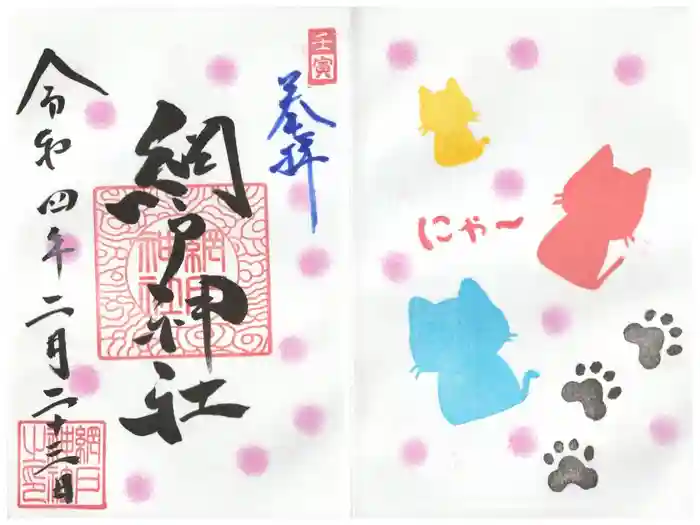 壬寅
奉拝
網戸神社
網戸神社
令和四年二月二十二日
網戸神社之印
にゃ〜